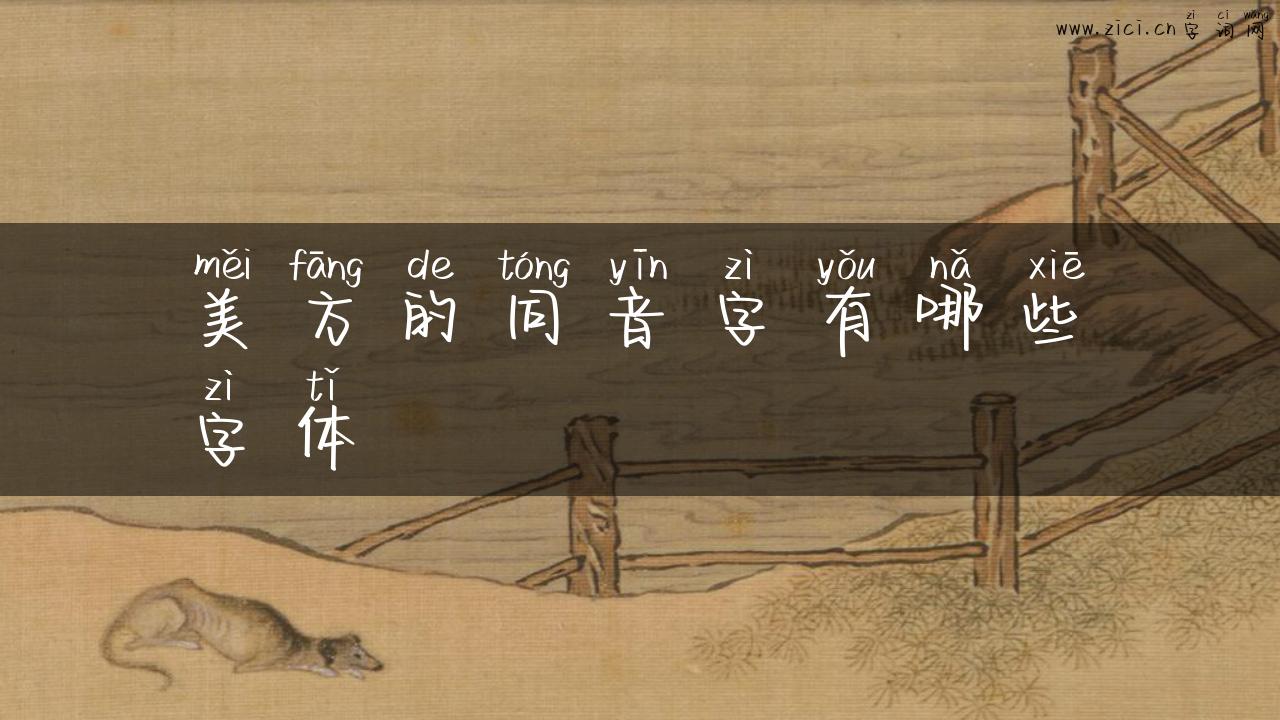 zì cí wǎng
www.zici.cn 字词网
měi fāng de tóng yīn zì yǒu nǎ xiē
美方的同音字有哪些
zì tǐ
字体